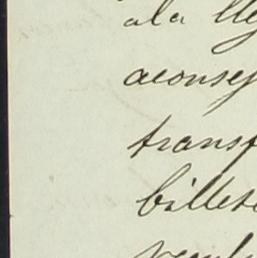 a la lle
aconsej
transf
billete